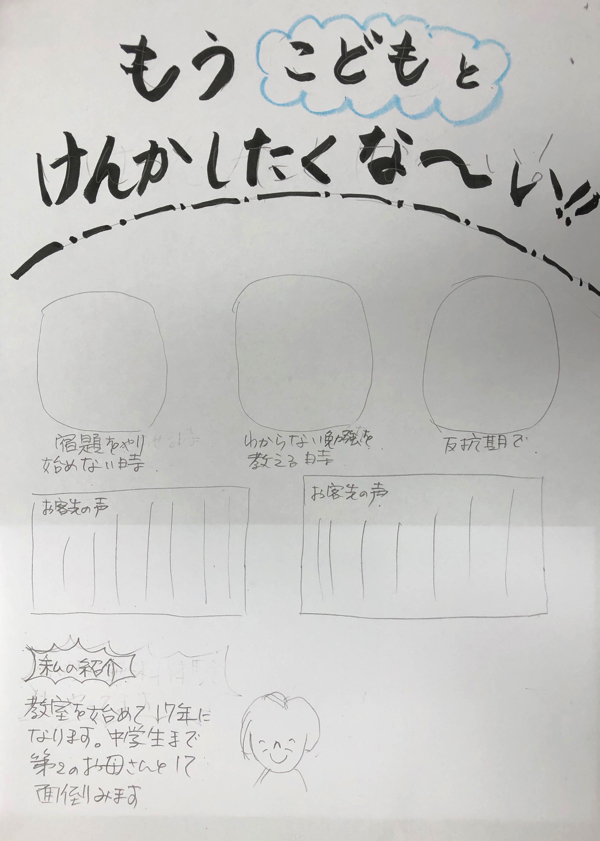 もう こどもと
けんかしたくな〜い!!
宿題をやり
始めない時
わからない勉強を
教える時
反抗期で
お客先の声
お客先の声
私の紹介
教室を始めて17年に
なります。中学生まで
第2のお母さんとして
面倒みます